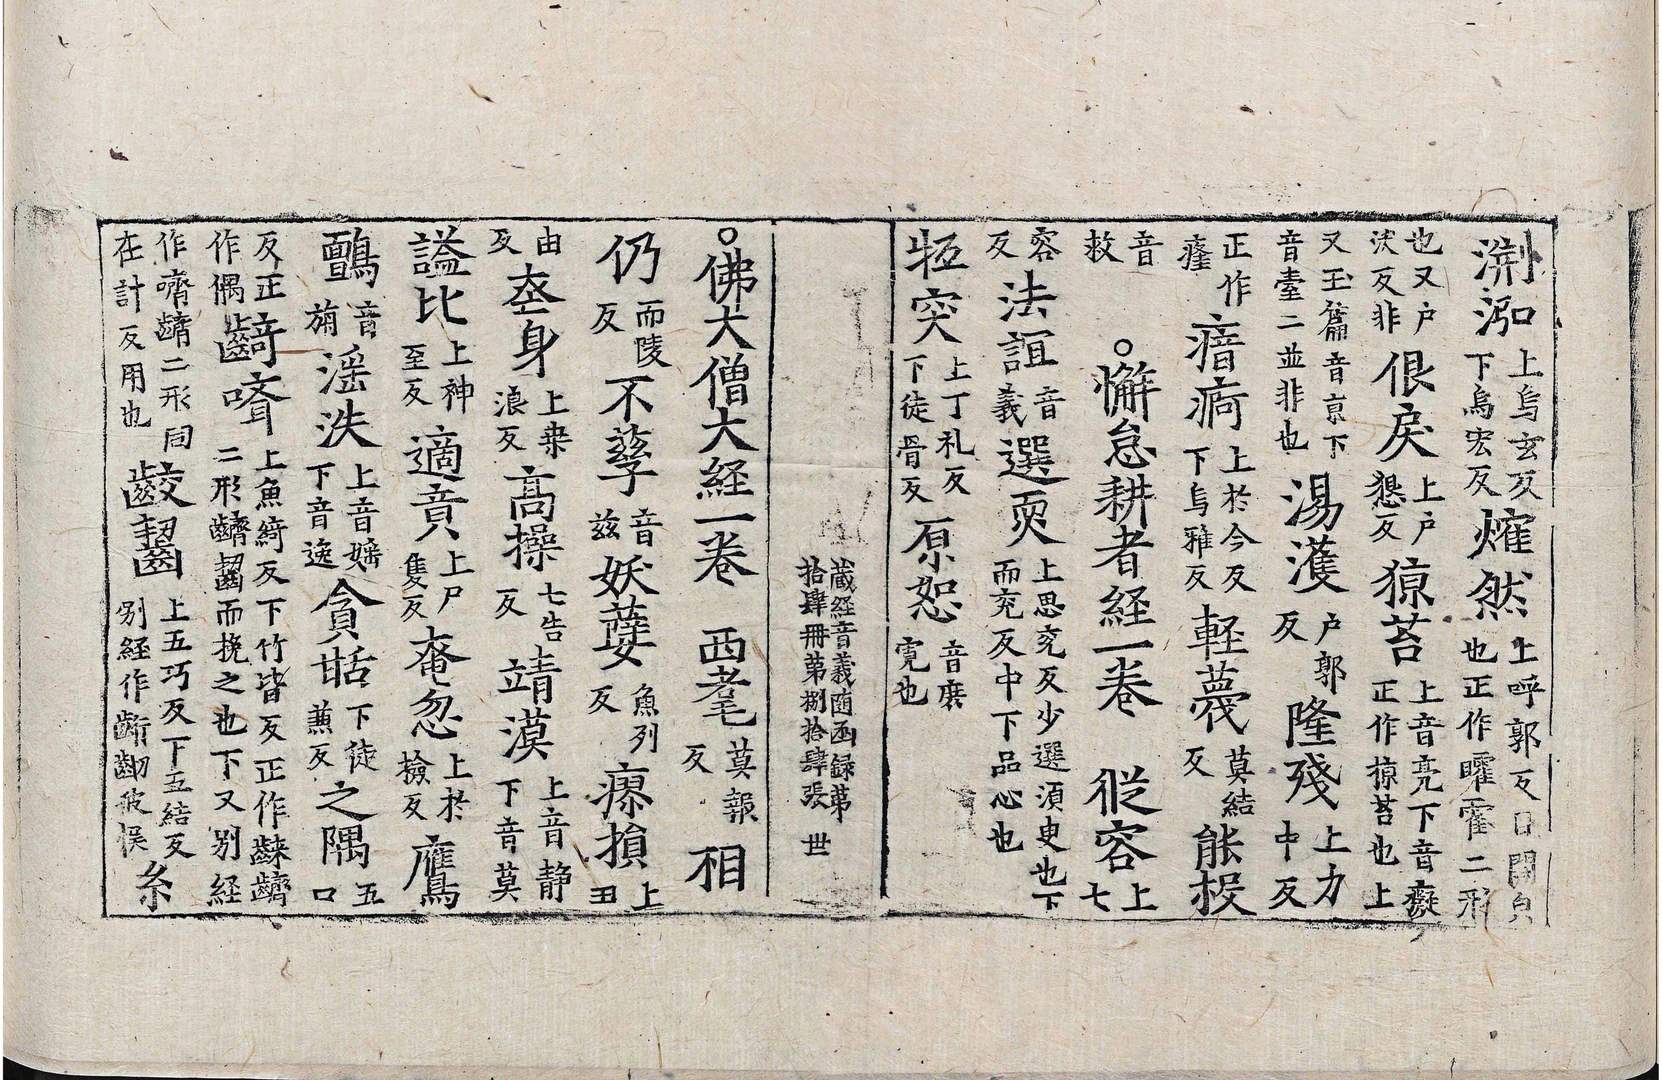 渆泓上烏玄反下烏宏反㸌然上呼郭反日開皃也正作矐霍二形
也又户沃反非佷戾上户懇反猄苔上音亮下音癡正作掠笞也上
又玉篇音京下音臺二並非也湯濩户郭反隆殘上力中反
正作𤸇瘖痾上於今反下烏雅反輕薎莫結反能捄
音救○懈怠耕者経一卷 從容上七
容反法誼音義選耎上思兖反少選湏臾也下而兖反中下品心也
牴突上丁礼反下徒骨反原恕音庶寛也
蔵経音義随函録第拾肆冊第捌拾肆張 世
○佛大僧大経一卷 西耄莫報反相
仍而陵反不孳音兹妖㜸魚列反瘵損上丑
由反㐬身上桒浪反高操七告反靖漠上音静下音莫
謚比上神至反適意上尸隻反奄忽上於檢反鷹
鸇音旃滛泆上音婬下音逸貪甛下徒蒹反之隅五口
反正作偶齮㗨上魚綺反下竹皆反正作𪘨齌二形齌齧而挽之也下又別経
作嚌齌二形同在計反用也齩齧上五巧反下五結反別経作齗齭彼悮糸